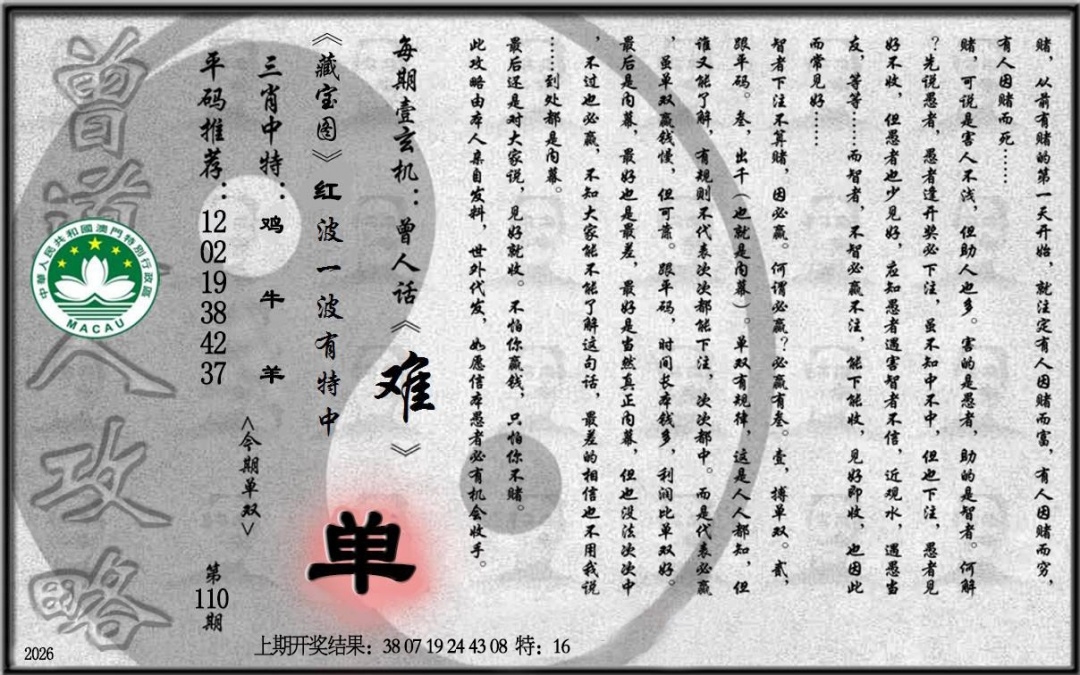 赌，从前有赌的第一天开始，就注定有人因赌而富，有人因赌而穷，
有人因赌而死……
赌，可说是害人不浅，但助人也多。害的是愚者，助的是智者。何解
？先说愚者，愚者逢开奖必下注，虽不知中不中，但也下注，愚者见
好不收，但愚者也少见好，应知愚者遇害智者不信，近观水，遇愚当
友，等等……而智者，不智必赢不注，能下能收，见好即收，也因此
而常见好……
智者下注不算赌，因必赢。何谓必赢？必赢有叁。壹，搏单双。贰，
跟平码。叁，出千（也就是内幕）。单双有规律，这是人人都知，但
谁又能了解，有规则不代表次次都能下注，次次都中。而是代表必赢
，虽单双赢钱慢，但可靠。跟平码，时间长本钱多，利润比单双好。
最后是内幕，最好也是最差，最好是当然真正内幕，但也没法次次中
，不过也必赢，不知大家能不能了解这句话，最差的相信也不用我说
……到处都是内幕。
最后还是对大家说，见好就收。不怕你赢钱，只怕你不赌。
此攻略由本人亲自发料，世外代发，如愿信本愚者必有机会收手。
每期壹玄机：曾人话《难》
《藏宝图》红波一波有特中
单
三肖中特：鸡牛羊
<今期单双>
平码推荐：12 02 19 38 42 37
第110期
曾道人攻略
中華人民共和國澳門特別行政區
MACAU
上期开奖结果：38 07 19 24 43 08 特：16
2026